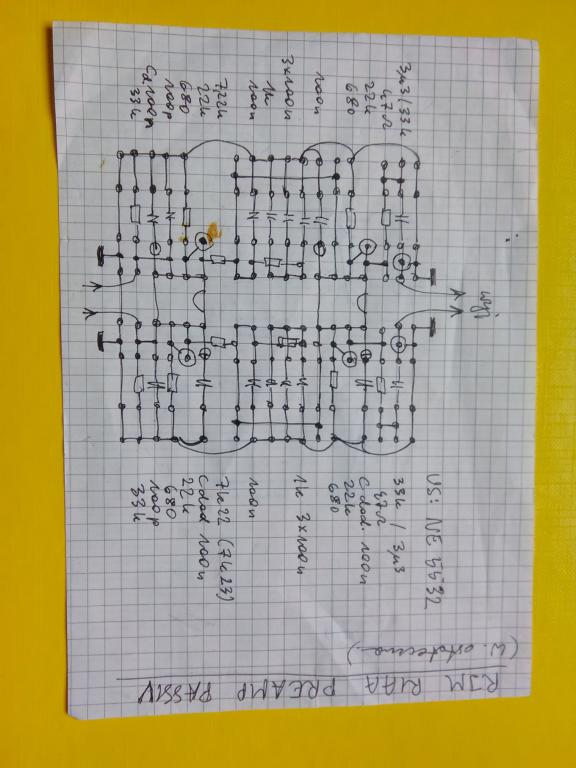 RJM RIAA PREAMP PASSIV
US: NE 5532
3µ3/33k
47Ω
22k
680
100n
3x100n
1k
100n
7,22k
22k
680
100p
Cd 100p
33k
wyj
33k / 3µ3
47Ω
Cdod. 100n
22k
680
1k 3x100n
100n
7k22 (7k23)
Cdod 100n
22k
680
100p
33k